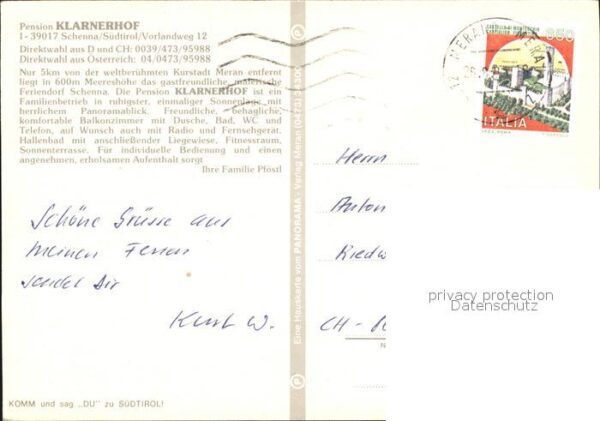 Pension KLARNERHOF
I- 39017 Schenna/Südtirol/Vorlandweg 12
Direktwahl aus D und CH: 0039/473/95988
Direktwahl aus Österreich: 04/0473/95988
Nur 5km von der weltberühmten Kurstadt Meran entfernt
liegt in 600m Meereshöhe das gastfreundliche, malerische
Feriendorf Schenna. Die Pension KLARNERHOF ist ein
Familienbetrieb in ruhigster, einmaliger Sonnenlage mit
herrlichem Panoramablick. Freundliche, behagliche,
komfortable Balkonzimmer mit Dusche, Bad, WC und
Telefon, auf Wunsch auch mit Radio und Fernsehgerät.
Hallenbad mit anschließender Liegewiese, Fitnessraum,
Sonnenterrasse. Für individuelle Bedienung und einen
angenehmen, erholsamen Aufenthalt sorgt
Ihre Familie Pföstl
Schöne Grüsse aus
meinen Ferien
sendet Dir
Kurt W.
KOMM und sag „DU" zu SÜDTIROL!
Eine Hauskarte vom PANORAMA - Verlag Meran (0473)
MERAN
650
ITALIA
Herrn
Anton
Riedw
CH -
privacy protection
Datenschutz